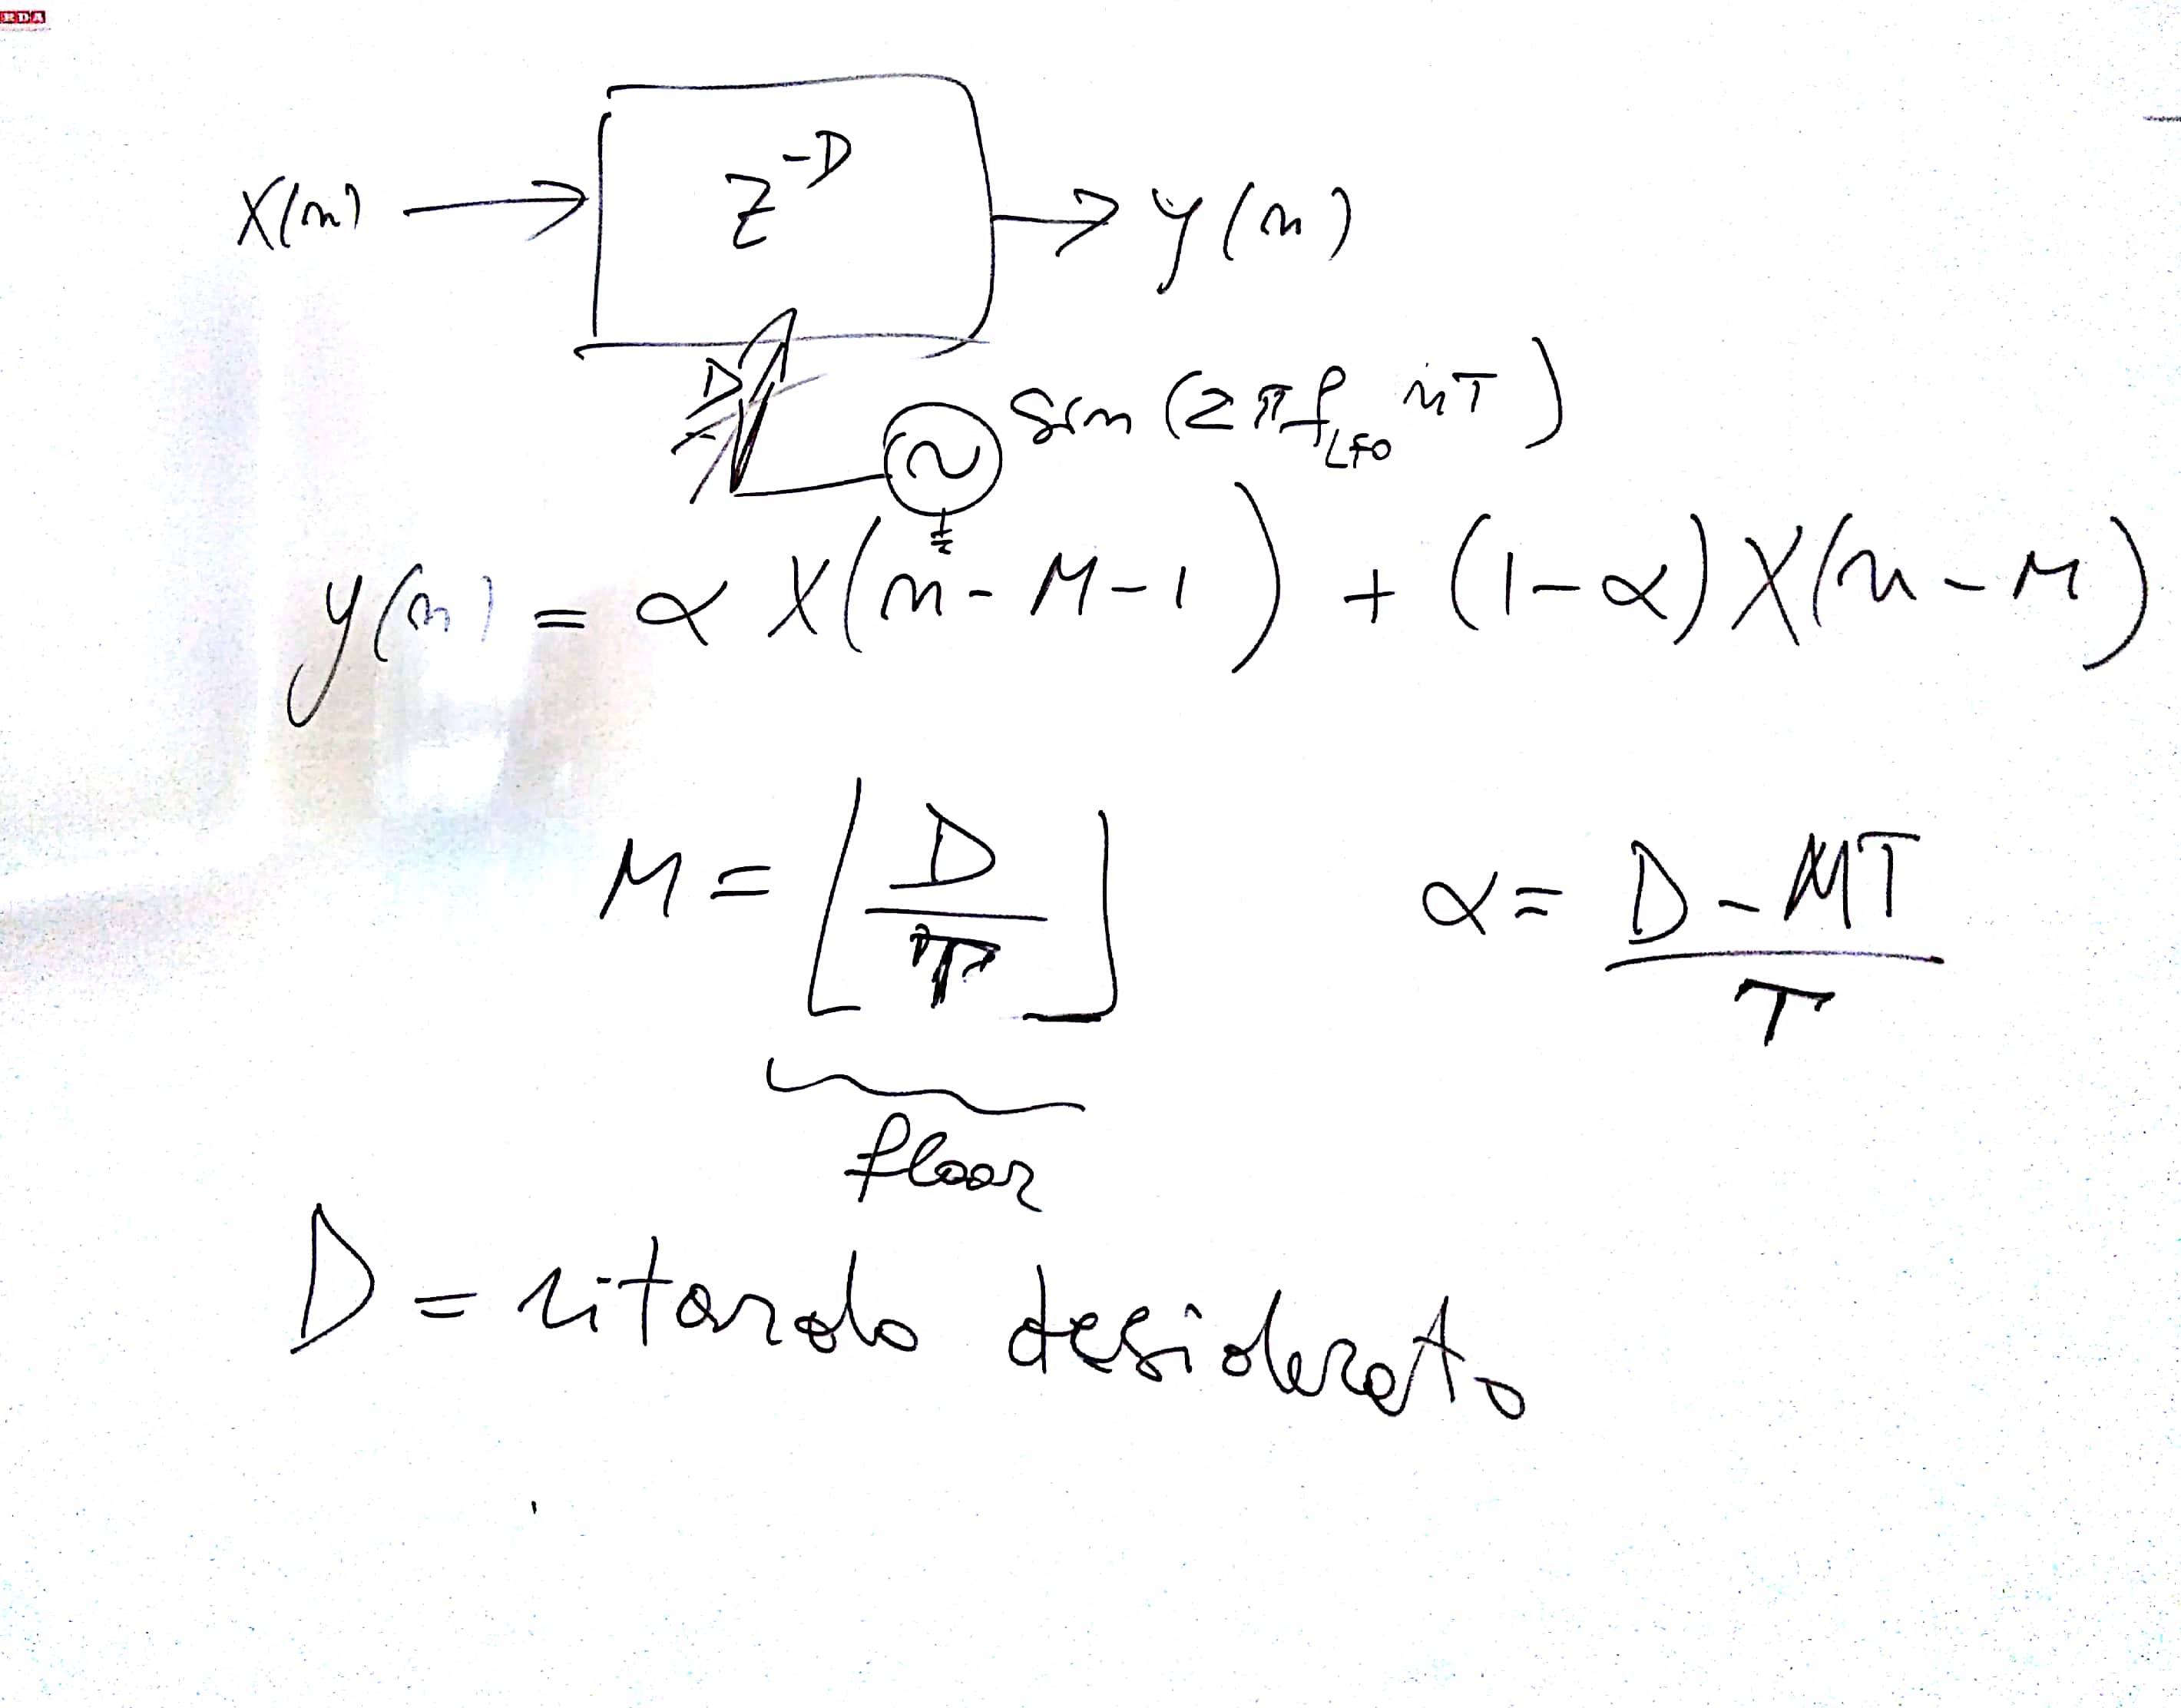 RDA
x(n) → z^{-D} → y(n)
D
sin(2πf_{LFO} nT)
y(n) = α x(n-M-1) + (1-α) x(n-M)
M = ⌊D/T⌋ α = (D-MT)/T
floor
D = ritardo desiderato